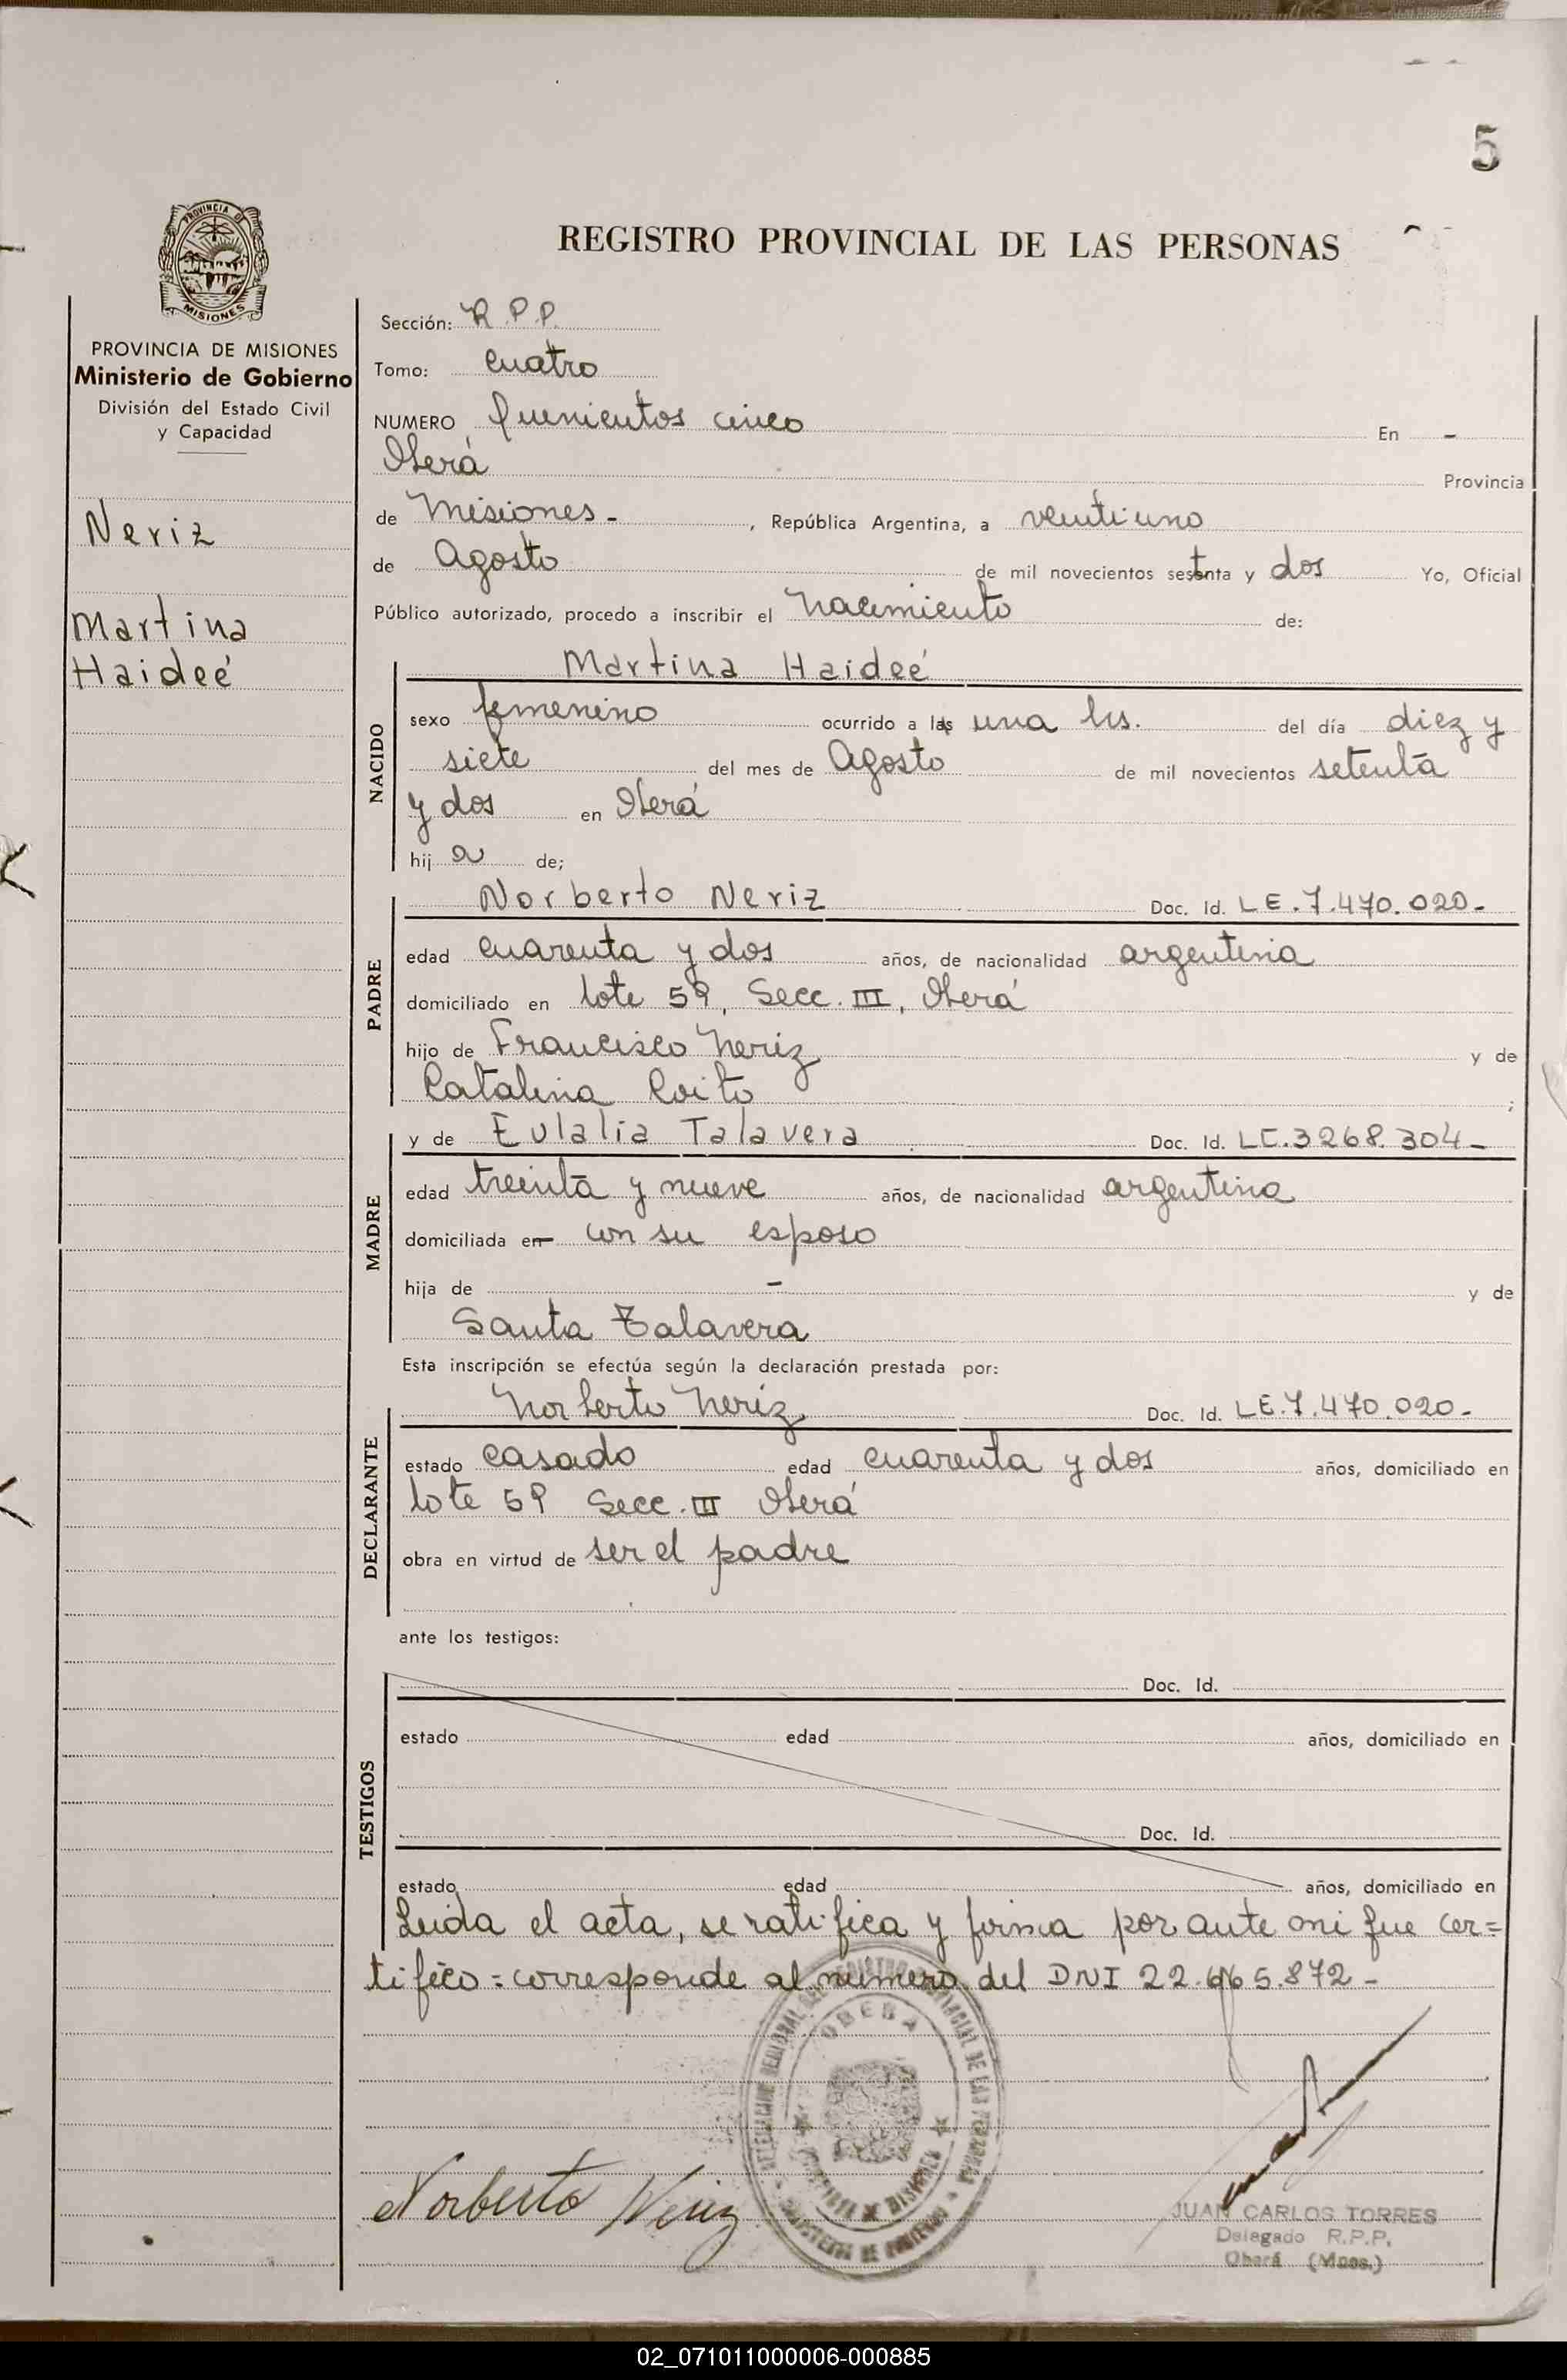 5
PROVINCIA DE
MISIONES
REGISTRO PROVINCIAL DE LAS PERSONAS
PROVINCIA DE MISIONES
Ministerio de Gobierno
División del Estado Civil
y Capacidad
Neriz
Martina
Haideé
Sección: R.P.P.
Tomo: cuatro
NUMERO Quinientos cinco En -
Oberá Provincia
de Misiones- , República Argentina, a veintiuno
de Agosto de mil novecientos setenta y dos Yo, Oficial
Público autorizado, procedo a inscribir el Nacimiento de:
Martina Haideé
NACIDO
sexo femenino ocurrido a las una hs. del día diez y
siete del mes de Agosto de mil novecientos setenta
y dos en Oberá
hij a de;
Norberto Neriz Doc. Id. LE.7.470.020-
PADRE
edad cuarenta y dos años, de nacionalidad argentina
domiciliado en lote 59, Secc. III, Oberá
hijo de Francisco Neriz y de
Catalina Coito ;
y de Eulalia Talavera Doc. Id. LC.3268.304-
MADRE
edad treinta y nueve años, de nacionalidad argentina
domiciliada en con su esposo
hija de - y de
Santa Talavera
Esta inscripción se efectúa según la declaración prestada por:
Norberto Neriz Doc. Id. LE.7.470.020-
DECLARANTE
estado casado edad cuarenta y dos años, domiciliado en
lote 59 Secc. III Oberá
obra en virtud de ser el padre
ante los testigos:
Doc. Id.
TESTIGOS
estado edad años, domiciliado en
Doc. Id.
estado edad años, domiciliado en
Leida el acta, se ratifica y firma por ante mi que cer=
tifico = corresponde al número del DNI 22.665.872-
OBERA
Norberto Neriz
JUAN CARLOS TORRES
Delegado R.P.P.
Oberá (Mnes.)
02_071011000006-000885